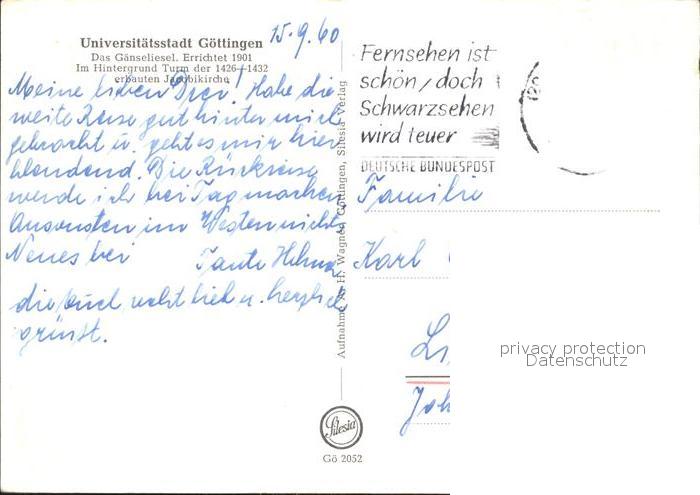 15.9.60
Universitätsstadt Göttingen
Das Gänseliesel. Errichtet 1901
Im Hintergrund Turm der 1426–1432
erbauten Jacobikirche
Meine lieben Drei! Habe die
weite Reise gut hinter mich
gebracht u. geht es mir hier
blendend. Die Rückreise
werde ich bei Tag machen
Ansonsten im Westen nichts
Neues bei Tante Helma
die Euch recht lieb u. herzlich
grüsst.
Aufnahme A. H. Wagner, Göttingen, Silesia Verlag
Fernsehen ist
schön, doch
Schwarzsehen
wird teuer
DEUTSCHE BUNDESPOST
Familie
Karl
privacy protection
Datenschutz
Joh
Silesia
Gö 2052